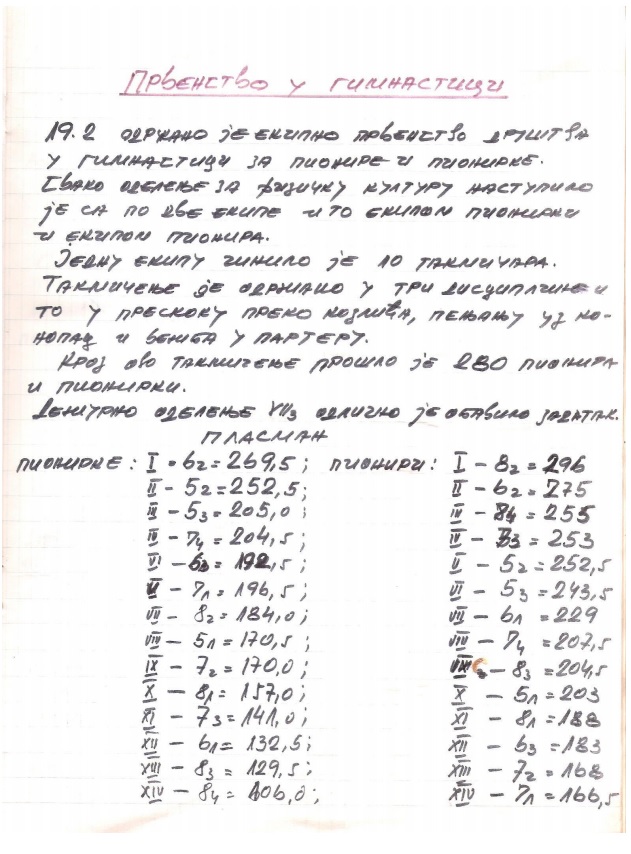 Првенство у гимнастици
19.2 одржано је екипно првенство друштва
у гимнастици за пионире и пионирке.
Свако оделење за физичку културу наступило
је са по две екипе и то екипом пионирки
и екипом пионира.
Једну екипу чинило је 10 такмичара.
Такмичење је одржано у три дисциплине и
то у прескоку преко козлића, пењању уз ко-
нопац и вежба у партеру.
Кроз ово такмичење прошло је 280 пионира
и пионирки.
Дежурно оделење VII3 одлично је обавило задатак.
ПЛАСМАН
пионирке: I - 62 = 269,5; пионири: I - 82 = 296
II - 52 = 252,5; II - 62 = 275
III - 53 = 205,0; III - 84 = 255
IV - 74 = 204,5; IV - 73 = 253
VI - 63 = 192,5; V - 52 = 252,5
V - 71 = 196,5; VI - 53 = 243,5
VII - 82 = 184,0; VII - 61 = 229
VIII - 51 = 170,5; VIII - 74 = 207,5
IX - 72 = 170,0; - 83 = 204,5
X - 81 = 157,0; X - 51 = 203
XI - 73 = 141,0; XI - 81 = 188
XII - 61 = 132,5; XII - 63 = 183
XIII - 83 = 129,5; XIII - 72 = 168
XIV - 84 = 106,0; XIV - 71 = 166,5